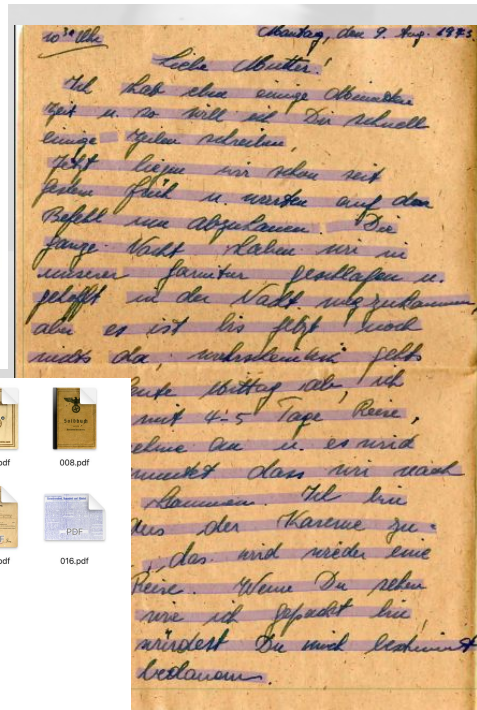 10³⁰ Uhr Montag, den 9. Aug. 1943.
Liebe Mutter!
Ich hab eben einige Minuten
Zeit u. so will ich Dir schnell
einige Zeilen schreiben.
Jetzt liegen wir schon seit
gestern früh u. warten auf den
Befehl um abzuhauen. Die
ganze Nacht haben wir in
unserer Garnitur geschlafen u.
gehofft in der Nacht wegzukommen,
aber es ist bis jetzt noch
nichts da, wahrscheinlich gehts
heute Mittag ab, ich
mit 4-5 Tage Reise,
nehme an u. es wird
dass wir nach
kommen. Ich bin
aus der Kaserne zu-
, das wird wieder eine
Reise. Wenn Du sehen
wie ich gepackt bin,
würdest Du mich bestimmt
bedauern.
pdf
008.pdf
pdf
016.pdf
Soldbuch
PDF